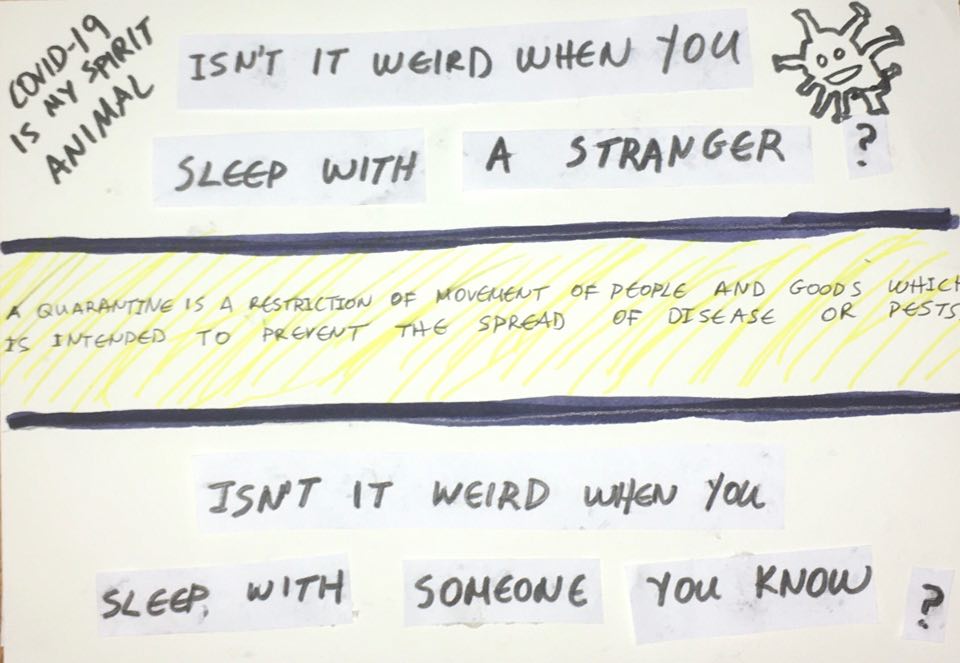 COVID-19
IS MY SPIRIT
ANIMAL
ISN'T IT WEIRD WHEN YOU
SLEEP WITH A STRANGER ?
A QUARANTINE IS A RESTRICTION OF MOVEMENT OF PEOPLE AND GOODS WHICH
IS INTENDED TO PREVENT THE SPREAD OF DISEASE OR PESTS.
ISN'T IT WEIRD WHEN YOU
SLEEP WITH SOMEONE YOU KNOW ?